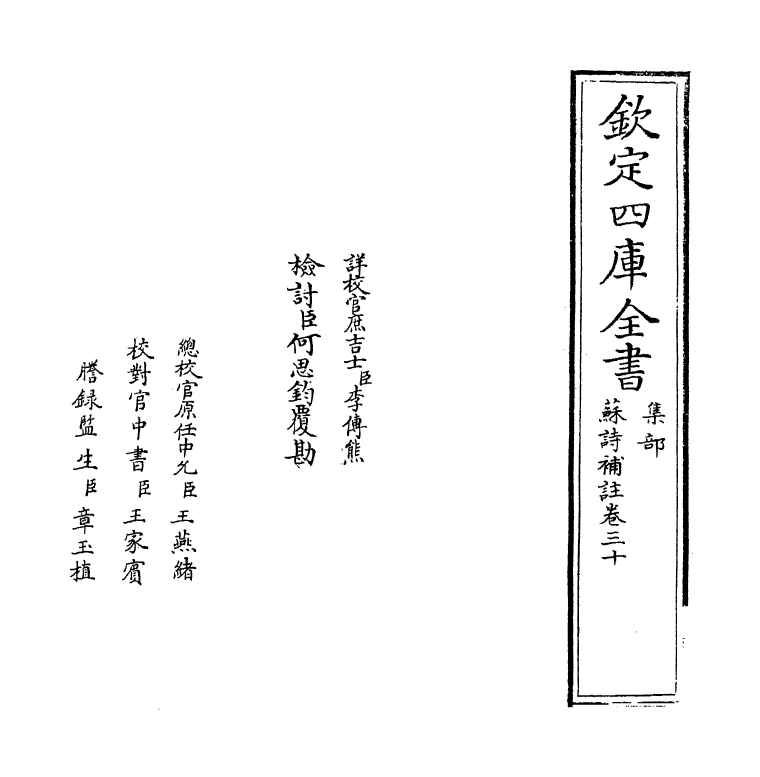 欽定四庫全書
集部
蘇詩補註卷三十
詳校官庶吉士臣李傳熊
檢討臣何思鈞覆勘
總校官原任中允臣王燕緒
校對官中書臣王家賓
謄録監生臣章玉植